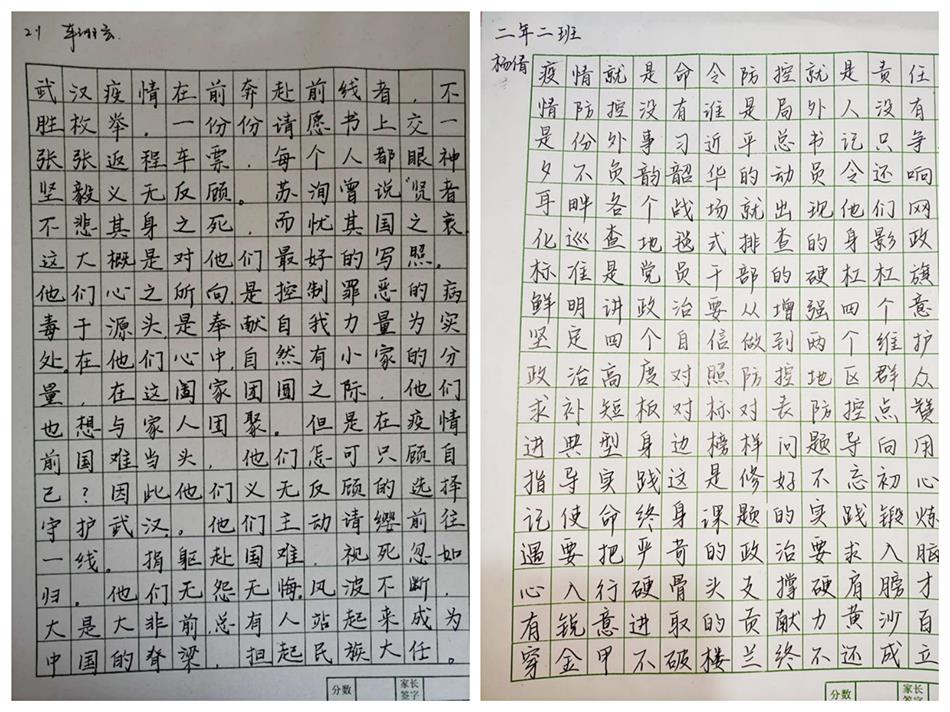 21
武汉疫情在前奔赴前线者，不
胜枚举。一份份请愿书上交一
张张返程车票，每个人都眼神
坚毅义无反顾。苏洵曾说“贤者
不悲其身之死，而忧其国之衰
这大概是对他们最好的写照。
他们心之所向，是控制罪恶的病
毒于源头，是奉献自我力量为实
处。在他们心中，自然有小家的分
量，在这国家团圆之际，他们
也想与家人团聚。但是在疫情
前国难当头，他们怎可只顾自
己？因此他们义无反顾的选择
守护武汉。他们主动请缨前往
一线。捐躯赴国难，视死忽如
归。他们无怨无悔，风波不断，
大是大非前，总有人站起来成为
中国的脊梁，担起民族大任。
分数
家长签字
二年二班
杨倩
疫情就是命令防控就是责任
情防控没有谁是局外人没有
是份外事习近平总书记只争
夕不负韵韶华的动员令还响
耳畔各个战场就出现他们网
化巡查地毯式排查的身影政
标准是党员干部的硬杠杠旗
鲜明讲政治要从增强四个意
坚定四个自信做到两个维护
政治高度对照防控地区群众
求补短板对标对表防控点赞
进典型身边榜样问题导向用
指导实践这是修好不忘初心
记使命终身课题的实践锻炼
遇要把严苛的政治要求入脑
心入行硬骨头支撑硬肩膀才
有锐意进取的贡献力黄沙百
穿金甲不破楼兰终不还成立
分数
家长签字